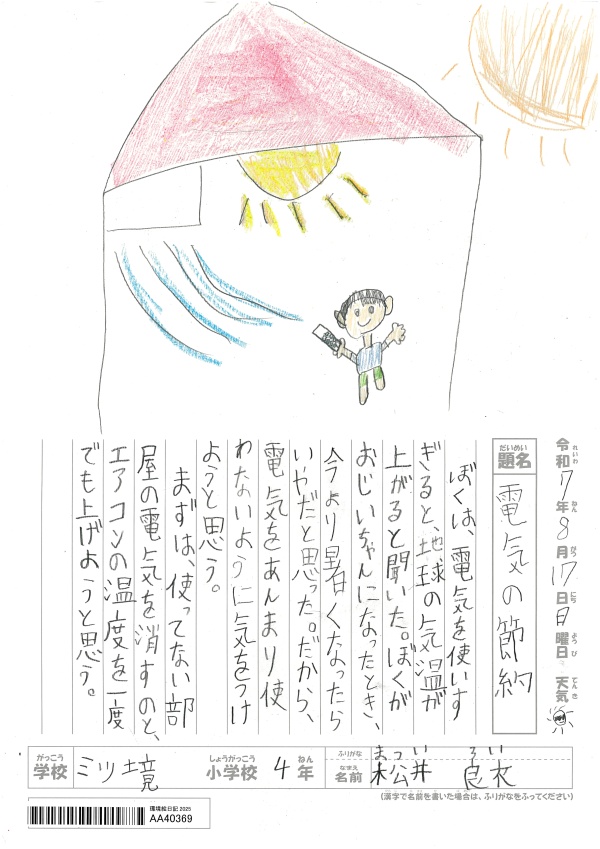 令和7年8月17日日曜日 天気
れいわ ねん がつ にち ようび てんき
だいめい
題名 電気の節約
ぼくは、電気を使いす
ぎると、地球の気温が
上がると聞いた。ぼくが
おじいちゃんになったとき、
今より暑くなったら
いやだと思った。だから、
電気をあんまり使
わないように気をつけ
ようと思う。
まずは、使ってない部
屋の電気を消すのと、
エアコンの温度を一度
でも上げようと思う。
がっこう しょうがっこう ねん
学校 ミツ境 小学校 4年
ふりがな まつい るい
なまえ
名前 松井 良衣
(漢字で名前を書いた場合は、ふりがなをふってください)
環境絵日記 2025
AA40369